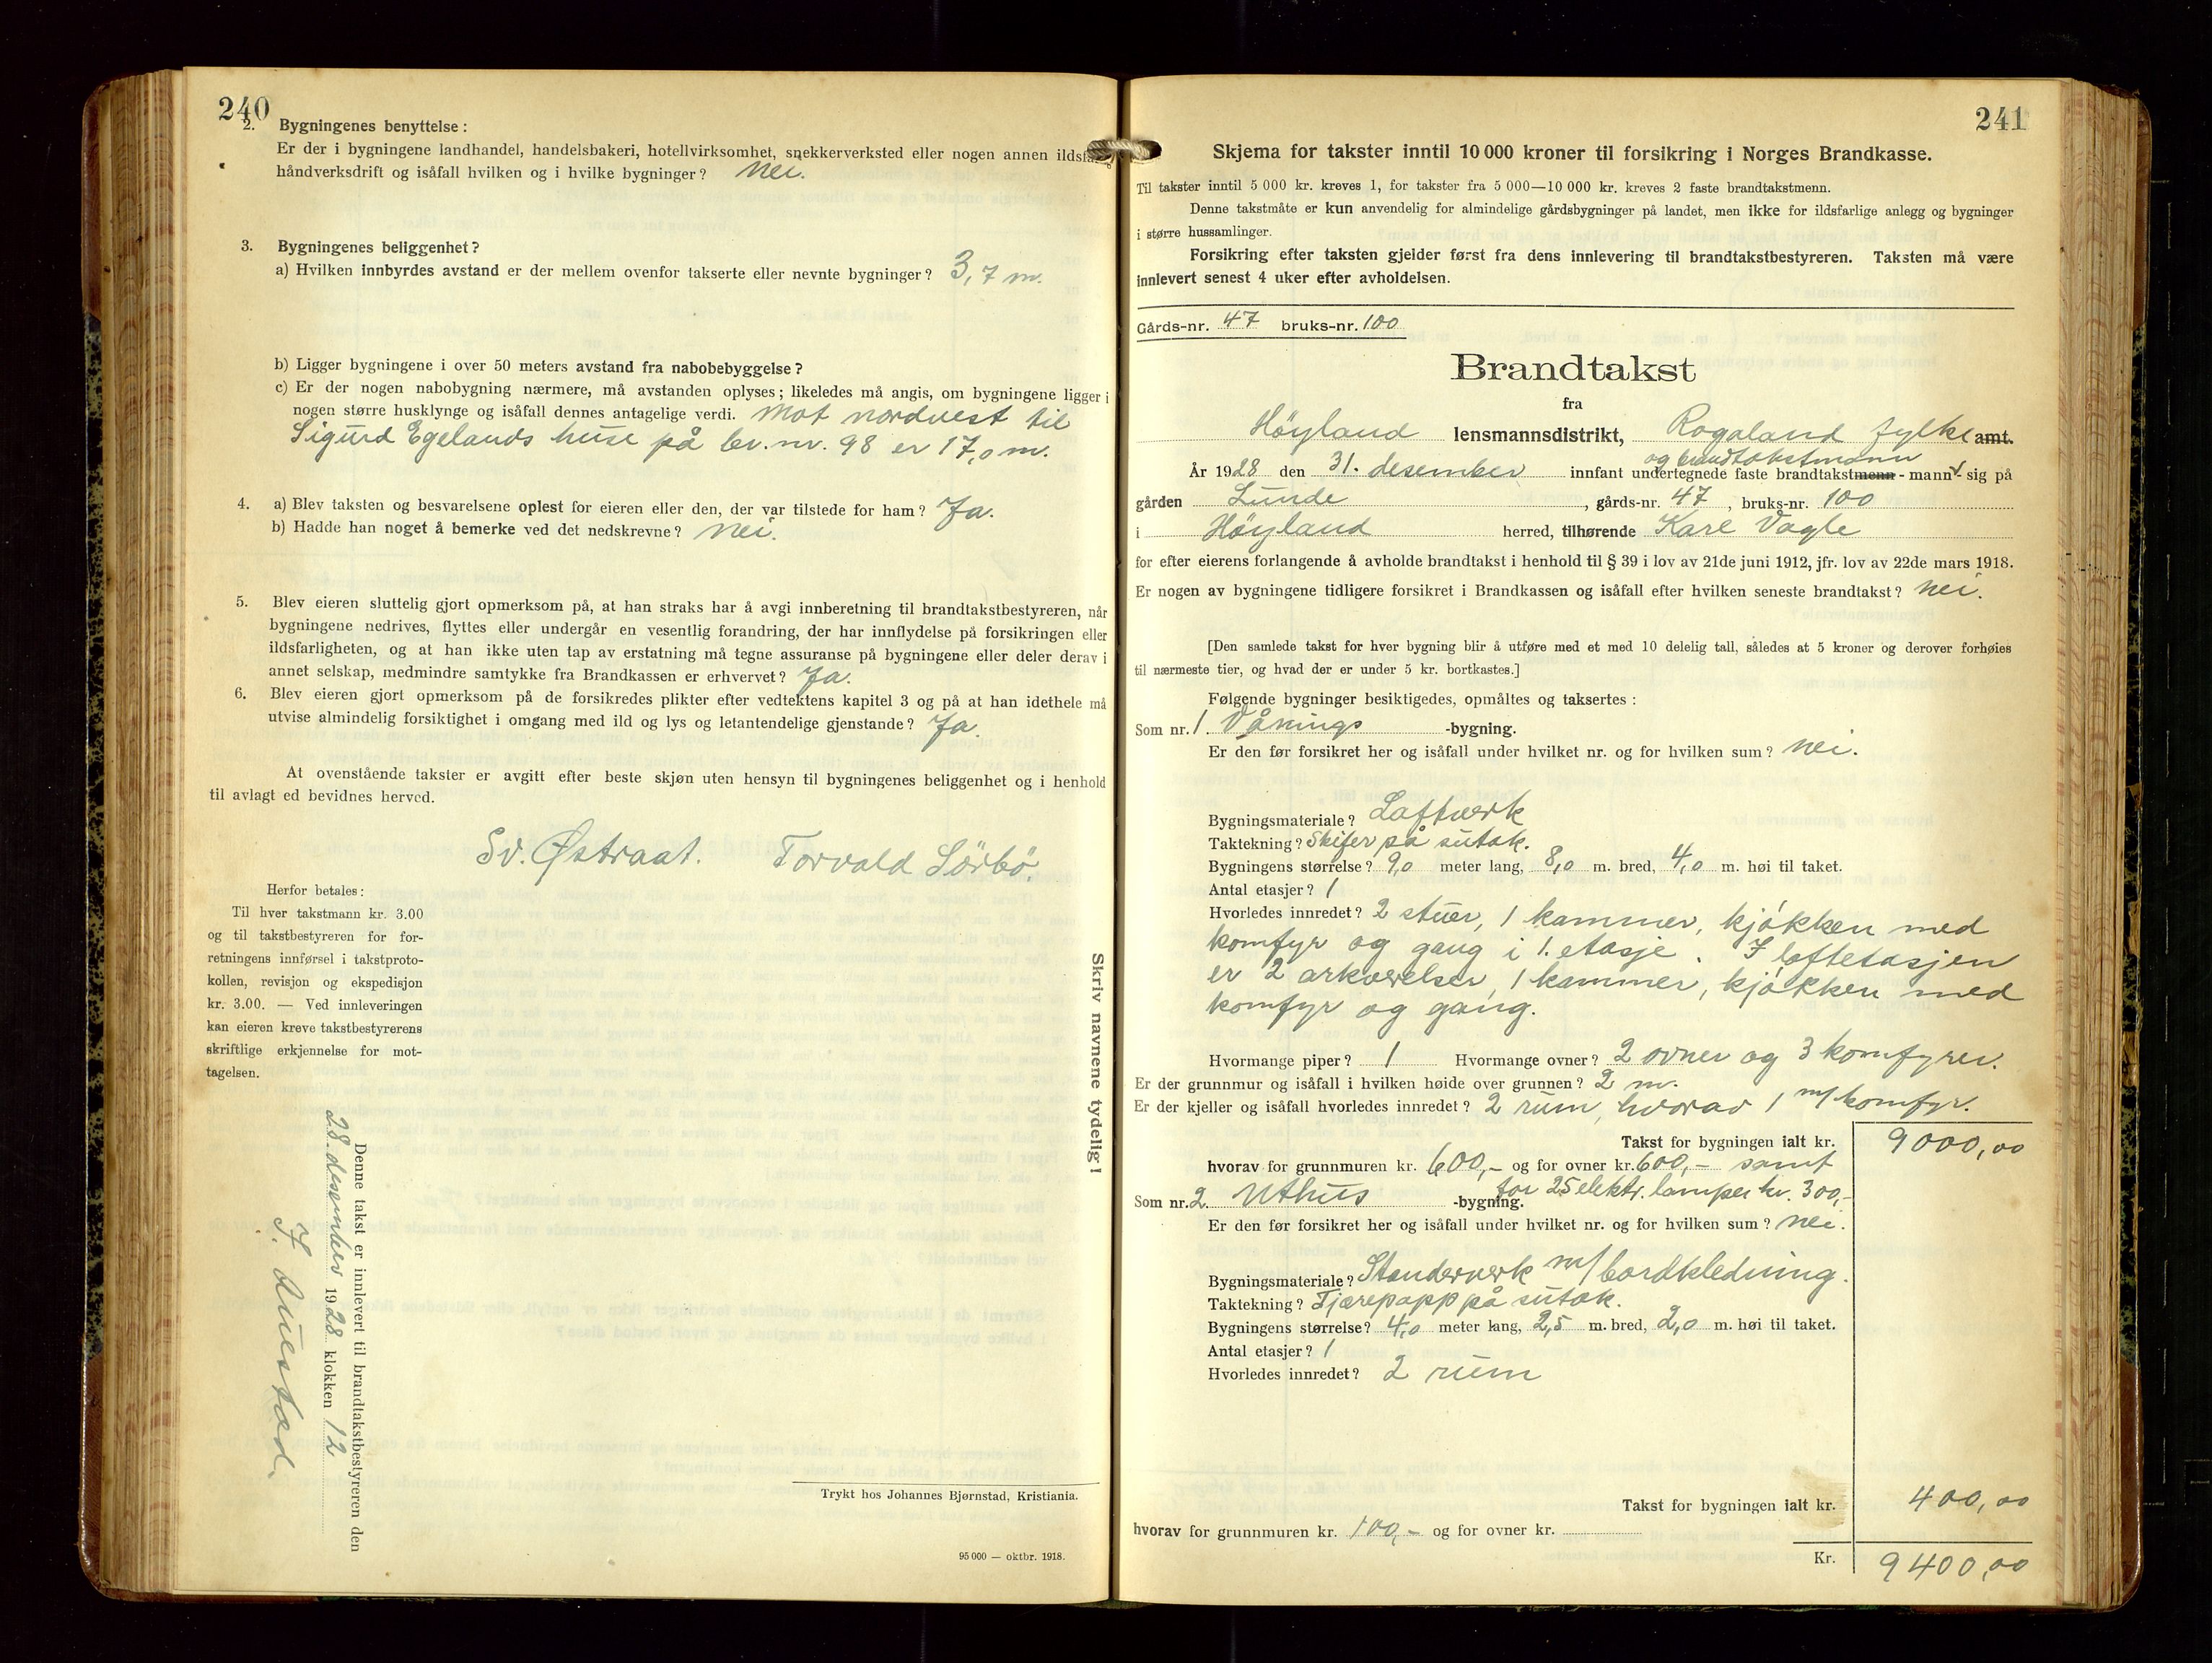 240
2. Bygningenes benyttelse :
Er der i bygningene landhandel, handelsbakeri, hotellvirksomhet, snekkerverksted eller nogen annen
håndverksdrift og isåfall hvilken og i hvilke bygninger? Nei.
3. Bygningenes beliggenhet?
a) Hvilken innbyrdes avstand er der mellem ovenfor takserte eller nevnte bygninger? 3,7 m.
b) Ligger bygningene i over 50 meters avstand fra nabobebyggelse?
c) Er der nogen nabobygning nærmere, må avstanden oplyses; likeledes må angis, om bygningene ligger i
nogen større husklynge og isåfall dennes antagelige verdi. Mot nordvest til
Sigurd Egelands huse på br. nr. 98 er 17,0 m.
4. a) Blev taksten og besvarelsene oplest for eieren eller den, der var tilstede for ham? Ja.
b) Hadde han noget å bemerke ved det nedskrevne? Nei.
5. Blev eieren sluttelig gjort opmerksom på, at han straks har å avgi innberetning til brandtakstbestyreren, når
bygningene nedrives, flyttes eller undergår en vesentlig forandring, der har innflydelse på forsikringen eller
ildsfarligheten, og at han ikke uten tap av erstatning må tegne assuranse på bygningene eller deler derav i
annet selskap, medmindre samtykke fra Brandkassen er erhvervet? Ja.
6. Blev eieren gjort opmerksom på de forsikredes plikter efter vedtektens kapitel 3 og på at han idethele må
utvise almindelig forsiktighet i omgang med ild og lys og letantendelige gjenstande? Ja.
At ovenstående takster er avgitt efter beste skjøn uten hensyn til bygningenes beliggenhet og i henhold
til avlagt ed bevidnes herved.
Sv. Østraat. Torvald Sörbö.
Herfor betales:
Til hver takstmann kr. 3.00
og til takstbestyreren for for-
retningens innførsel i takstproto-
kollen, revisjon og ekspedisjon
kr. 3.00. — Ved innleveringen
kan eieren kreve takstbestyrerens
skriftlige erkjennelse for mot-
tagelsen.
Denne takst er innlevert til brandtakstbestyreren den
28. desember 1928 klokken 12
Skriv navnene tydelig!
Trykt hos Johannes Bjørnstad, Kristiania.
95 000 — oktbr. 1918.
241
Skjema for takster inntil 10 000 kroner til forsikring i Norges Brandkasse.
Til takster inntil 5 000 kr. kreves 1, for takster fra 5 000—10 000 kr. kreves 2 faste brandtakstmenn.
Denne takstmåte er kun anvendelig for almindelige gårdsbygninger på landet, men ikke for ildsfarlige anlegg og bygninger
i større hussamlinger.
Forsikring efter taksten gjelder først fra dens innlevering til brandtakstbestyreren. Taksten må være
innlevert senest 4 uker efter avholdelsen.
Gårds-nr. 47 bruks-nr. 100
Brandtakst
fra
Höyland lensmannsdistrikt, Rogaland fylke amt.
og brandtakstmann
År 1928 den 31. desember innfant undertegnede faste brandtakstmenn - mann - sig på
gården Lunde, gårds-nr. 47, bruks-nr. 100
i Höyland herred, tilhørende Karl Vagle
for efter eierens forlangende å avholde brandtakst i henhold til § 39 i lov av 21de juni 1912, jfr. lov av 22de mars 1918.
Er nogen av bygningene tidligere forsikret i Brandkassen og isåfall efter hvilken seneste brandtakst? Nei.
[Den samlede takst for hver bygning blir å utføre med et med 10 delelig tall, således at 5 kroner og derover forhøies
til nærmeste tier, og hvad der er under 5 kr. bortkastes.]
Følgende bygninger besiktigedes, opmåltes og taksertes :
Som nr. 1. Vånings -bygning.
Er den før forsikret her og isåfall under hvilket nr. og for hvilken sum? Nei.
Bygningsmateriale? Laftverk
Taktekning? Skifer på sutak.
Bygningens størrelse? 9,0 meter lang, 8,0 m. bred, 4,0 m. høi til taket.
Antal etasjer? 1
Hvorledes innredet? 2 stuer, 1 kammer, kjøkken med
komfyr og gang i 1. etasje. I loftetasjen
er 2 arkværelser, 1 kammer, kjøkken med
komfyr og gang.
Hvormange piper? 1 Hvormange ovner? 2 ovner og 3 komfyrer.
Er der grunnmur og isåfall i hvilken høide over grunnen? 2 m.
Er der kjeller og isåfall hvorledes innredet? 2 rum, hvorav 1 m/komfyr.
Takst for bygningen ialt kr. 9000,00
hvorav for grunnmuren kr. 600,- og for ovner kr. 600,- samt
for 25 elektr. lamper kr. 300,-
Som nr. 2. Uthus -bygning.
Er den før forsikret her og isåfall under hvilket nr. og for hvilken sum? Nei.
Bygningsmateriale? Standerverk m/bordkledning.
Taktekning? Tjærepapp på sutak.
Bygningens størrelse? 4,0 meter lang, 2,5 m. bred, 2,0 m. høi til taket.
Antal etasjer? 1
Hvorledes innredet? 2 rum
Takst for bygningen ialt kr. 400,00
hvorav for grunnmuren kr. 100,- og for ovner kr.
Kr. 9400,00